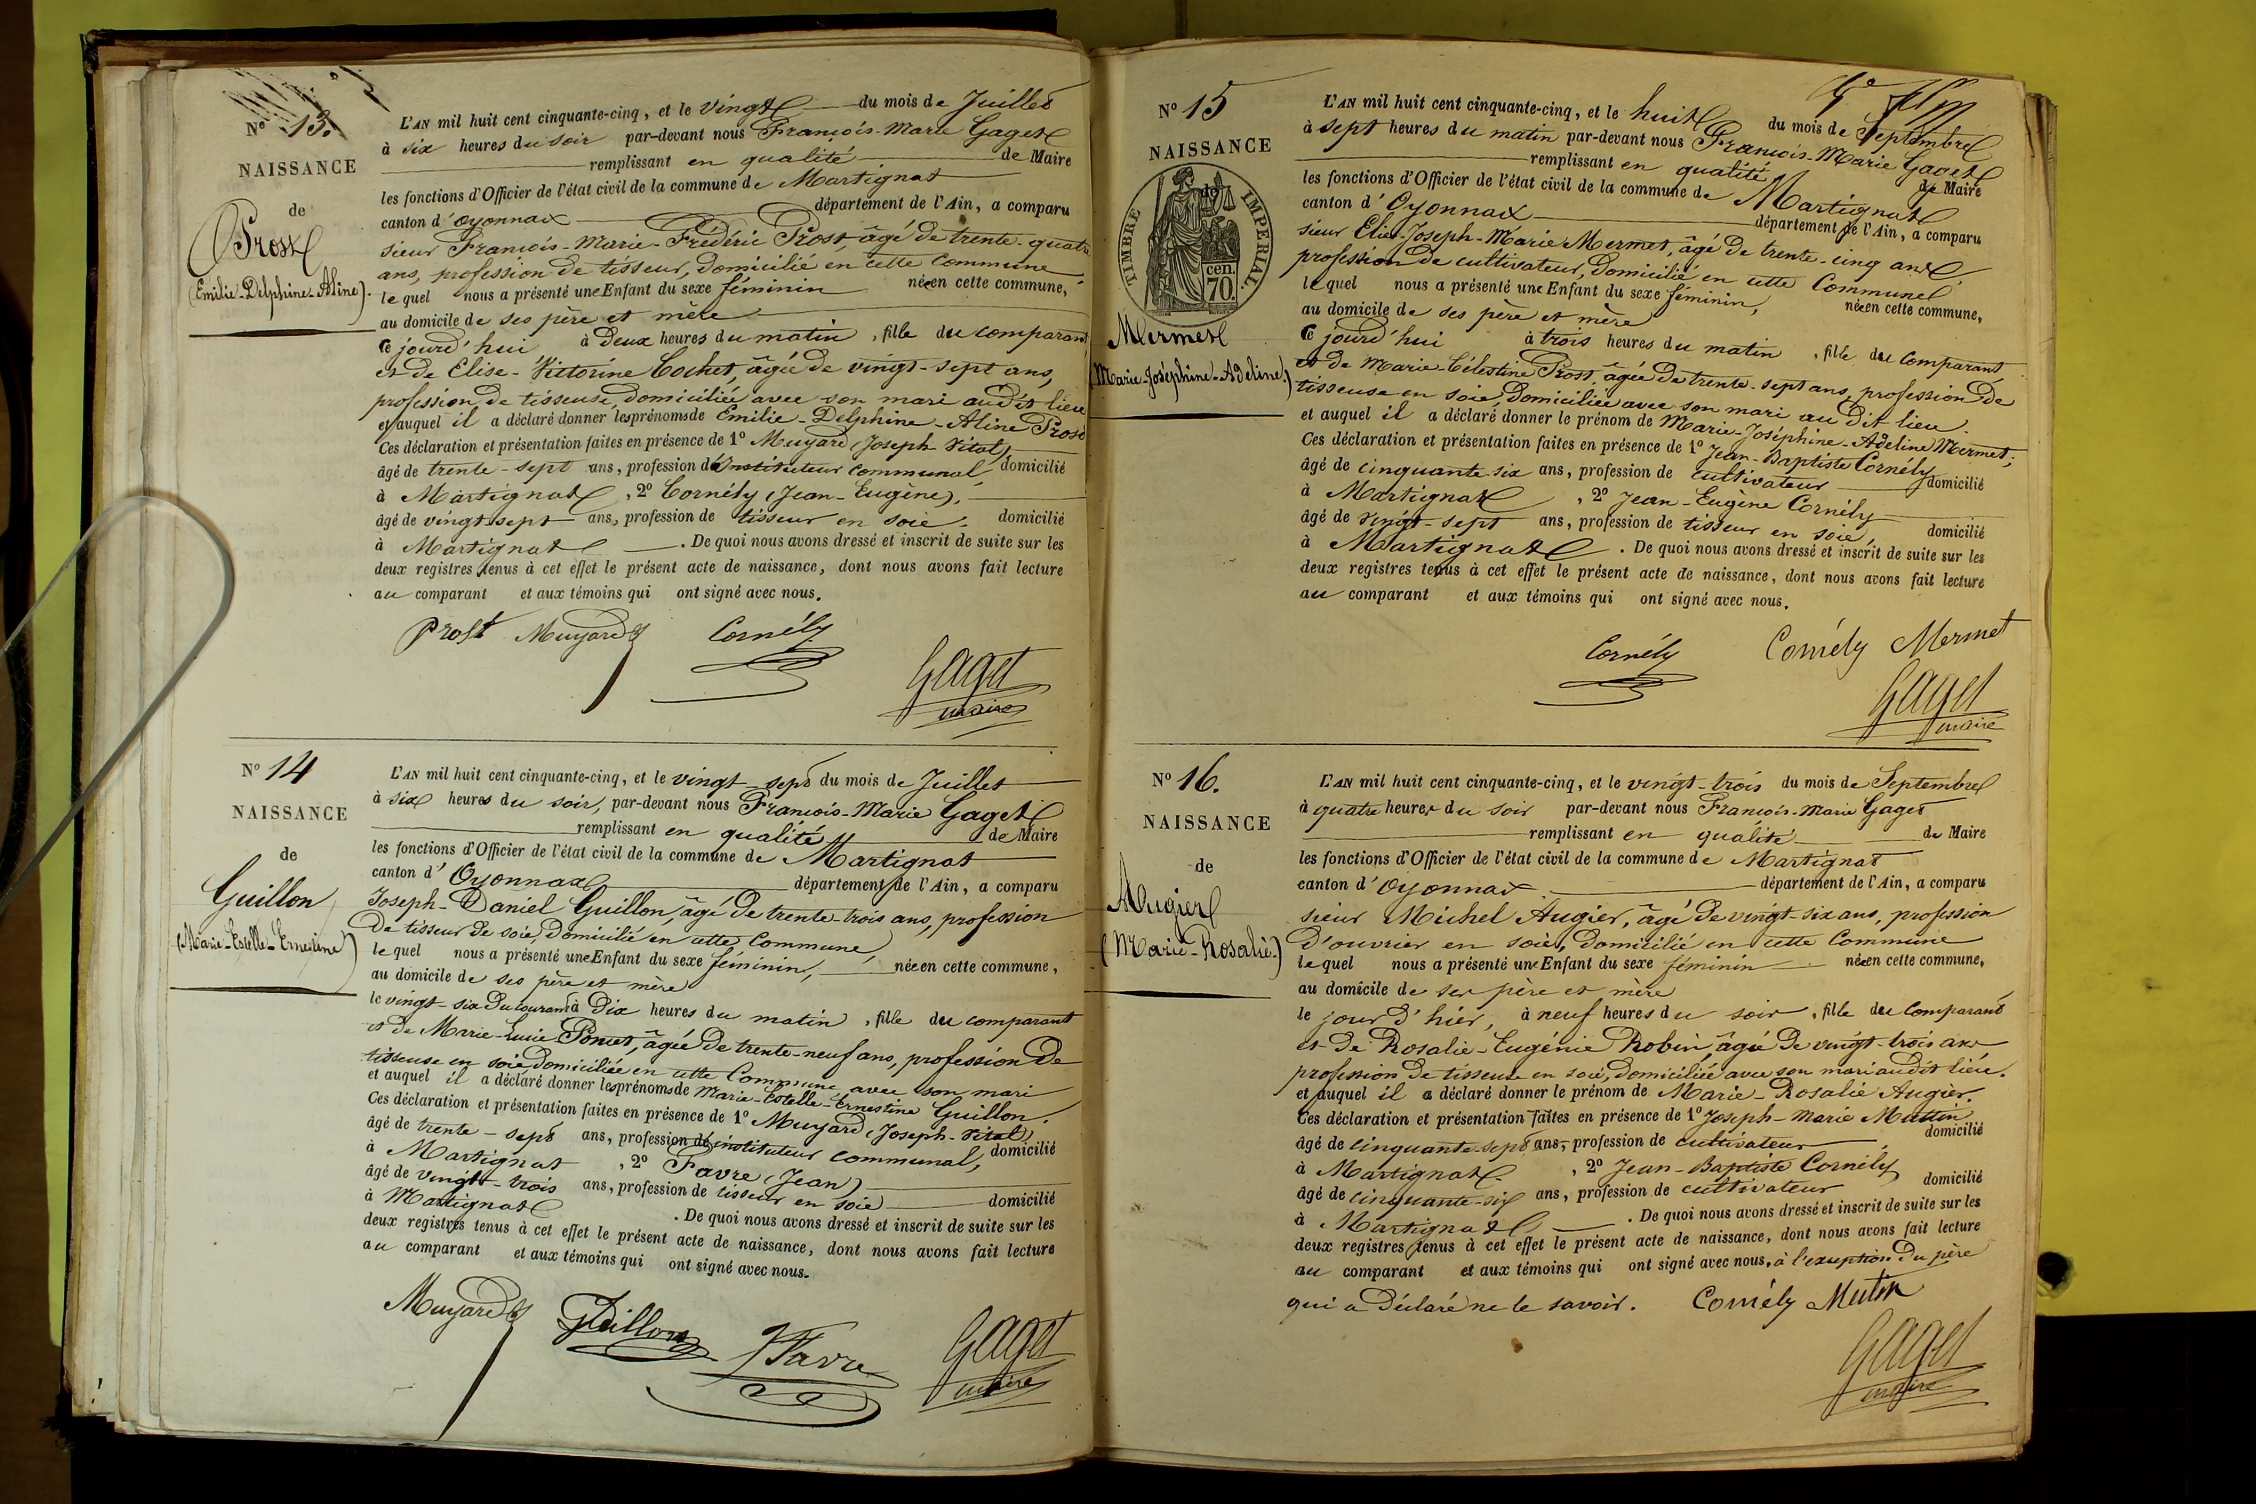 N° 13.
NAISSANCE
de
Prost
(Emilie-Delphine-Aline).
L'AN mil huit cent cinquante-cinq, et le vingt du mois de Juillet
à six heures du soir par-devant nous François-Marie Gaget
remplissant en qualité de Maire
les fonctions d'Officier de l'état civil de la commune de Martignat
canton d'Oyonnax département de l'Ain, a comparu
sieur François-Marie-Frédéric Prost, âgé de trente-quatre
ans, profession de tisseur, domicilié en cette commune,
lequel nous a présenté une Enfant du sexe féminin née en cette commune,
au domicile de ses père et mère
ce jourd'hui à deux heures du matin, fille du comparant
et de Elise-Victorine Cochet, âgée de vingt-sept ans,
profession de tisseuse, domiciliée avec son mari audit lieu
et auquel il a déclaré donner les prénoms de Emilie-Delphine-Aline Prost
Ces déclaration et présentation faites en présence de 1° Muyard (Joseph-Vital)
âgé de trente-sept ans, profession d'instituteur communal, domicilié
à Martignat, 2° Cornély (Jean-Eugène),
âgé de vingt-sept ans, profession de tisseur en soie. domicilié
à Martignat. De quoi nous avons dressé et inscrit de suite sur les
deux registres tenus à cet effet le présent acte de naissance, dont nous avons fait lecture
au comparant et aux témoins qui ont signé avec nous.
Prost Muyard Cornély
Gaget
maire
N° 14
NAISSANCE
de
Guillon
(Marie-Estelle-Ernestine)
L'AN mil huit cent cinquante-cinq, et le vingt-sept du mois de Juillet
à six heures du soir, par-devant nous François-Marie Gaget
remplissant en qualité de Maire
les fonctions d'Officier de l'état civil de la commune de Martignat
canton d'Oyonnax département de l'Ain, a comparu
Joseph-Daniel Guillon, âgé de trente-trois ans, profession
de tisseur de soie, domicilié en cette Commune,
lequel nous a présenté une Enfant du sexe féminin, née en cette commune,
au domicile de ses père et mère
le vingt-six du courant à dix heures du matin, fille du comparant
et de Marie-Lucie Poncet, âgée de trente-neuf ans, profession de
tisseuse en soie, domiciliée en cette Commune avec son mari
et auquel il a déclaré donner les prénoms de Marie-Estelle-Ernestine Guillon.
Ces déclaration et présentation faites en présence de 1° Muyard (Joseph-Vital)
âgé de trente-sept ans, profession de instituteur communal, domicilié
à Martignat, 2° Favre (Jean)
âgé de vingt-trois ans, profession de tisseur en soie domicilié
à Martignat. De quoi nous avons dressé et inscrit de suite sur les
deux registres tenus à cet effet le présent acte de naissance, dont nous avons fait lecture
au comparant et aux témoins qui ont signé avec nous.
Muyard Guillon J Favre
Gaget
maire
N° 15
NAISSANCE
de
TIMBRE IMPÉRIAL.
cen.
70.
Mermet
(Marie-Joséphine-Adeline.)
L'AN mil huit cent cinquante-cinq, et le huit du mois de Septembre
à sept heures du matin par-devant nous François-Marie Gaget
remplissant en qualité de Maire
les fonctions d'Officier de l'état civil de la commune de Martignat
canton d'Oyonnax département de l'Ain, a comparu
sieur Elie-Joseph-Marie Mermet, âgé de trente-cinq ans,
profession de cultivateur, domicilié en cette Commune
lequel nous a présenté une Enfant du sexe féminin, née en cette commune,
au domicile de ses père et mère
ce jourd'hui à trois heures du matin, fille du comparant
et de Marie-Célestine Prost, âgée de trente-sept ans, profession de
tisseuse en soie, domiciliée avec son mari au dit lieu
et auquel il a déclaré donner le prénom de Marie-Joséphine-Adeline Mermet;
Ces déclaration et présentation faites en présence de 1° Jean-Baptiste Cornély
âgé de cinquante-six ans, profession de cultivateur domicilié
à Martignat, 2° Jean-Eugène Cornély
âgé de vingt-sept ans, profession de tisseur en soie, domicilié
à Martignat. De quoi nous avons dressé et inscrit de suite sur les
deux registres tenus à cet effet le présent acte de naissance, dont nous avons fait lecture
au comparant et aux témoins qui ont signé avec nous.
Cornély Cornély Mermet
Gaget
maire
N° 16.
NAISSANCE
de
Augier
(Marie-Rosalie.)
L'AN mil huit cent cinquante-cinq, et le vingt-trois du mois de Septembre
à quatre heures du soir par-devant nous François-Marie Gaget
remplissant en qualité de Maire
les fonctions d'Officier de l'état civil de la commune de Martignat
canton d'Oyonnax département de l'Ain, a comparu
sieur Michel Augier, âgé de vingt-six ans, profession
d'ouvrier en soie, domicilié en cette Commune
lequel nous a présenté une Enfant du sexe féminin née en cette commune,
au domicile de ses père et mère
le jour d'hier, à neuf heures du soir, fille du comparant
et de Rosalie-Eugénie Robin, âgée de vingt-trois ans
profession de tisseuse en soie, domiciliée avec son mari audit lieu.
et auquel il a déclaré donner le prénom de Marie-Rosalie Augier.
Ces déclaration et présentation faites en présence de 1° Joseph-Marie Muttin
âgé de cinquante-sept ans, profession de cultivateur domicilié
à Martignat, 2° Jean-Baptiste Cornély
âgé de cinquante-six ans, profession de cultivateur domicilié
à Martignat. De quoi nous avons dressé et inscrit de suite sur les
deux registres tenus à cet effet le présent acte de naissance, dont nous avons fait lecture
au comparant et aux témoins qui ont signé avec nous, à l'exception du père
qui a déclaré ne le savoir. Cornély Mutin
Gaget
maire